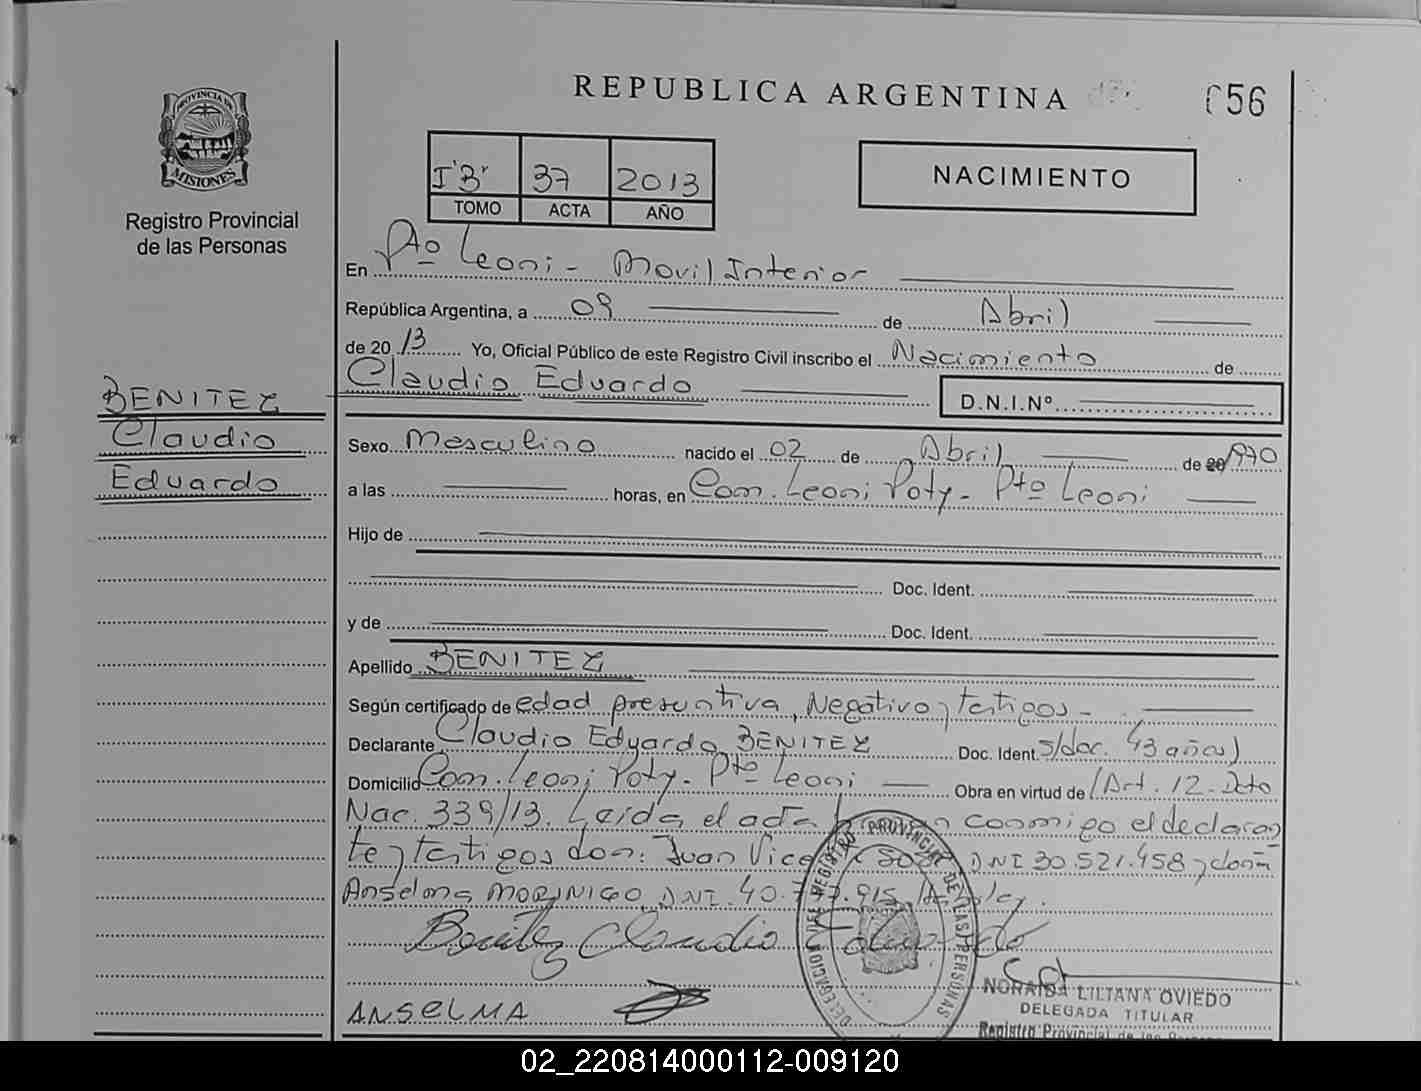 REPUBLICA ARGENTINA
056
PROVINCIA DE
MISIONES
Registro Provincial
de las Personas
I "B" 37 2013
TOMO ACTA AÑO
NACIMIENTO
En Pto Leoni - Movil Interior
República Argentina, a 09 de Abril
de 20 13 Yo, Oficial Público de este Registro Civil inscribo el Nacimiento de
Claudio Eduardo
D.N.I.Nº
BENITEZ
Claudio
Eduardo
Sexo Masculino nacido el 02 de Abril de 20 1970
a las horas, en Com. Leoni Poty - Pto Leoni
Hijo de
Doc. Ident.
y de Doc. Ident.
Apellido BENITEZ
Según certificado de edad presuntiva, Negativo y testigos -
Declarante Claudio Eduardo BENITEZ Doc. Ident. s/doc. 43 años)
Domicilio Com. Leoni Poty - Pto Leoni Obra en virtud de (Art. 12 - Dcto
Nac. 339/13. Leida el acta conmigo el declaran
te y testigos don: Juan DNI 30.521.458 y doña
Anselma MORINIGO, DNI. 40.
Benitez Claudio Eduardo
ANSELMA
DELEGACION DEL REGISTRO PROVINCIAL DE LAS PERSONAS
NORAIDA LILIANA OVIEDO
DELEGADA TITULAR
Registro Provincial de las Personas
02_220814000112-009120